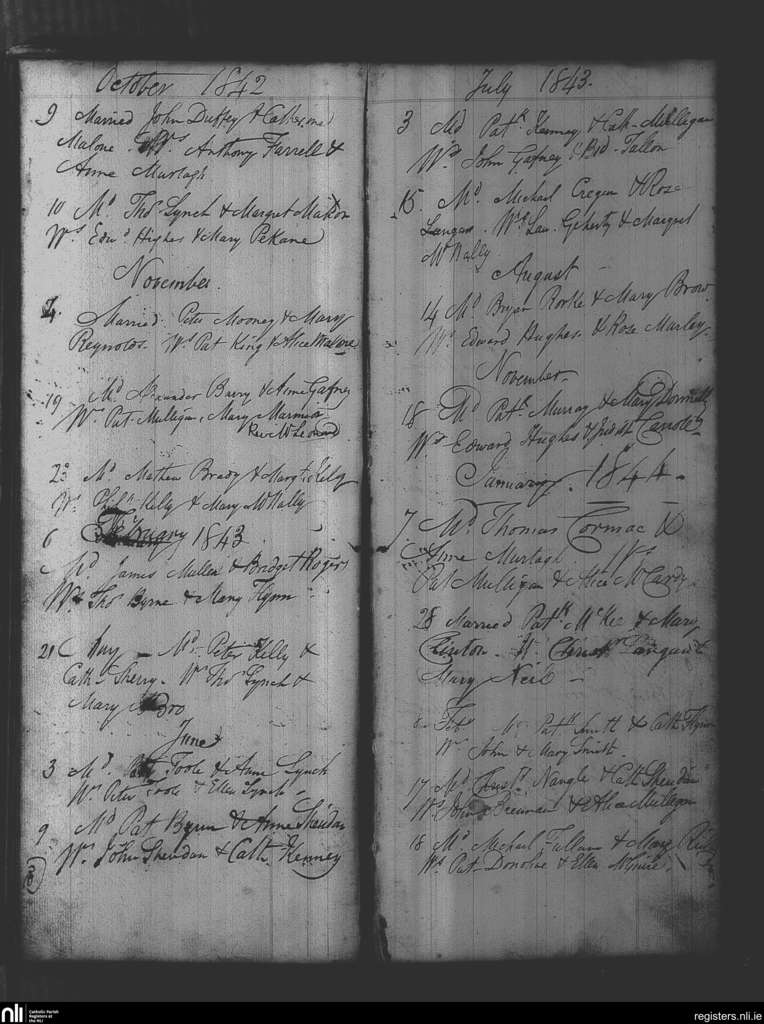 October 1842
9 Married John Duffey & Catherine
Malone. Ws Anthony Farrell &
Anne Murtagh
10 Md Thos Lynch & Margret Matton
Ws Edwd Highes & Mary Pekane
November
4. Married Peter Mooney & Mary
Reynolds. Ws Pat King & Alice
19 Md Alexander Barry & Anne Gafney
Ws Pat Mulligan, Mary
Revd W Leonard
23 Md Mathew Brady & Margt Kelly
Ws Philip Kelly & Mary McNally
6 February 1843
Md James Mullen & Bridget Rogers
Ws Thos Byrne & Mary Flynn
21 May - Md Peter Kelly &
Cathe Sherry. Ws Thos Lynch &
Mary
June
3 Md Patt Toole & Anne Lynch
Ws Peter Toole & Ellen Lynch
9 Md Pat Byrn & Anne Sheridan
Ws John Sheridan & Cath. Kenney
July 1843.
3 Md Patk Kenney & Cath. Milligan
Ws John Gafney & Bd Fallon
15 Md Michael Cregan & Rose
Langan. Ws Lau. Geherty & Margret
McNally
August
14 Md Bryan Rorke & Mary Brow
Ws Edward Hughes & Rose Marley.
November
18 Md Patk Murray & Mary Donnelly
Ws Edward Hughes & Judith
January. 1844.
7 Md Thomas Cormac &
Anne Murtagh Ws
Pat Mulligan & Alice McCardy
28 Married Patk McKee & Mary
Clinton. Ws
Mary Neil
Feb. Md Patk Smith & Cath Flynn
Ws John & Mary Smith
17 Md Christr Nangle & Cath Sheridan
Ws John Brennan & Alice Mulligan
18 Md Michael Fallam & Mary
Ws Pat Donohoe & Ellen McGuire.
nli
Catholic Parish
Registers at
the NLI
registers.nli.ie